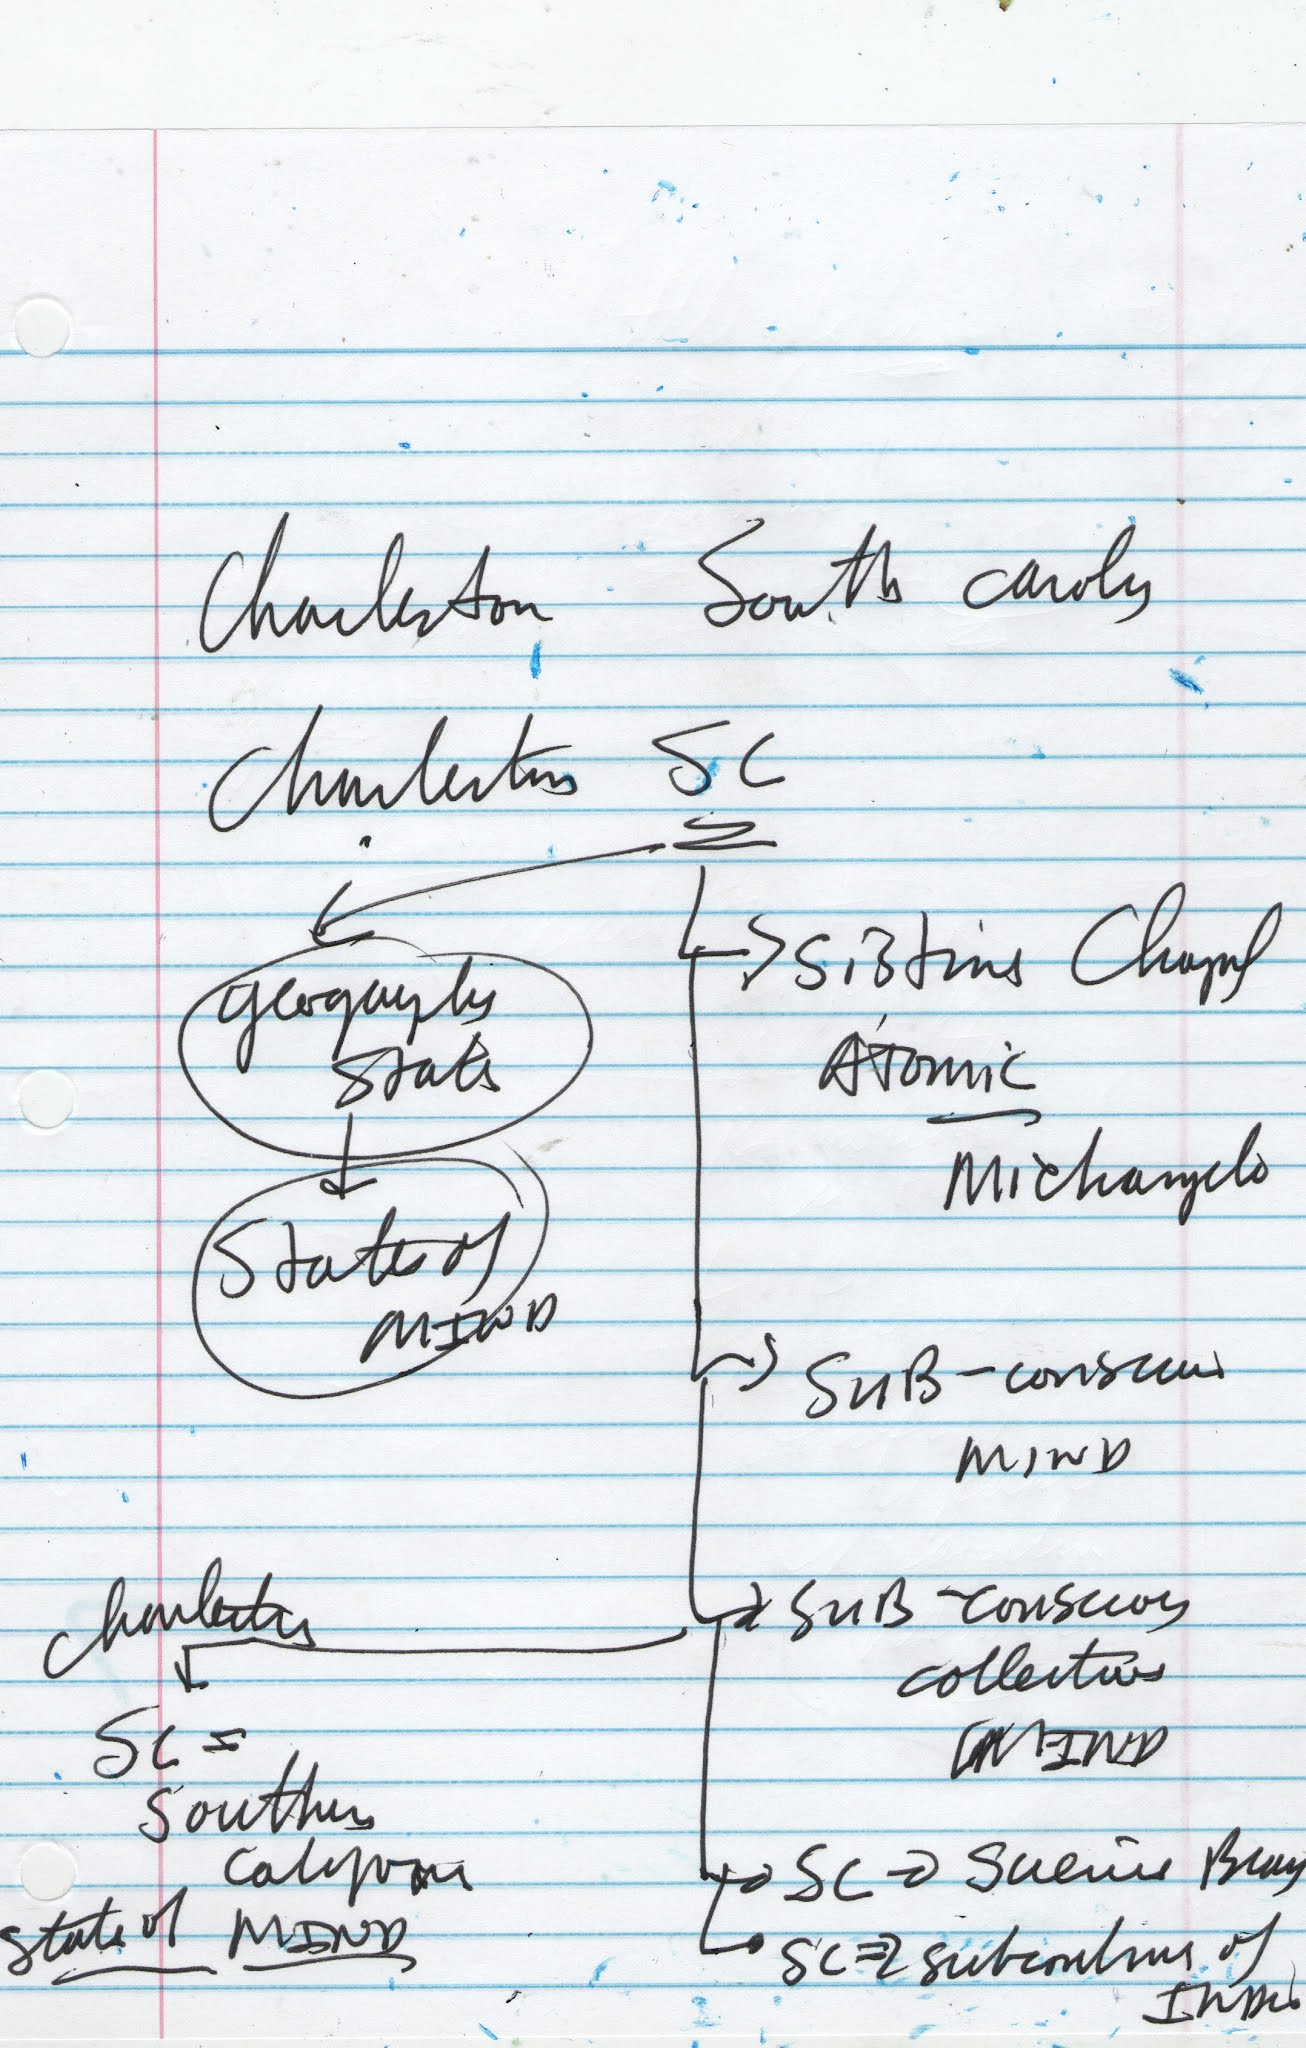 Charleston South Caroly
Charleston SC
Geography
State
States of
MIND
SiStine Chapel
Atomic
Michangelo
SUB-conscious
MIND
SUB-conscious
collective
MIND
Charleston
SC =
Southern
California
state of MIND
SC → Science
SC ⇒ subcontinent of
INDIA